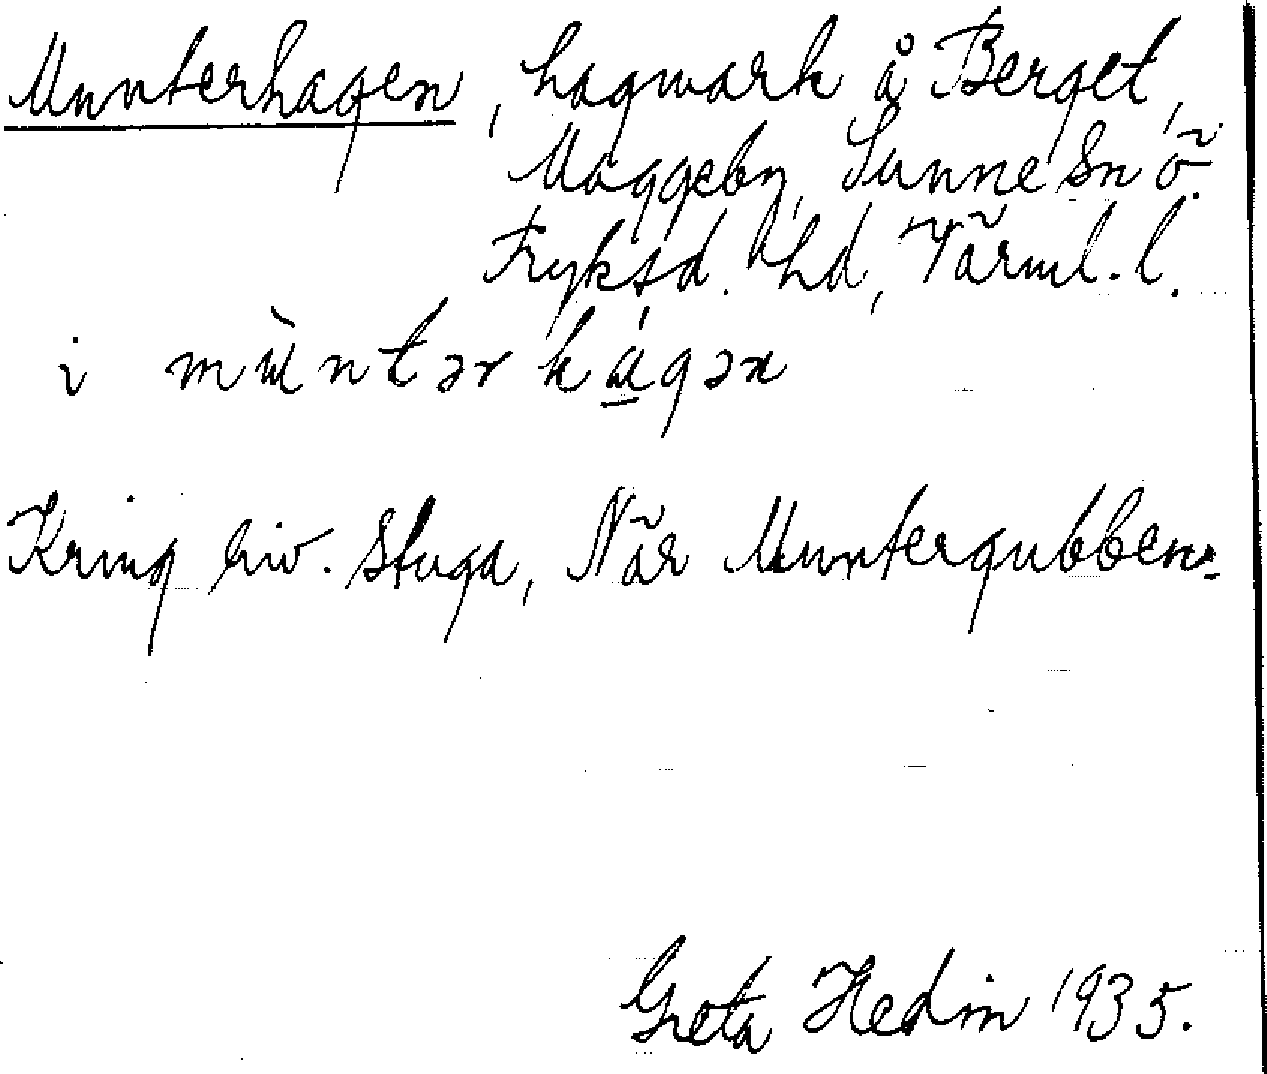 Munterhagen, hagmark å Berget,
Maggeby, Sunne Sn Ö.
Fryksd. hd, Värml. l.
i mùntər hágən
Kring riv. stuga, När Muntergubben.
Greta Hedin 1935.